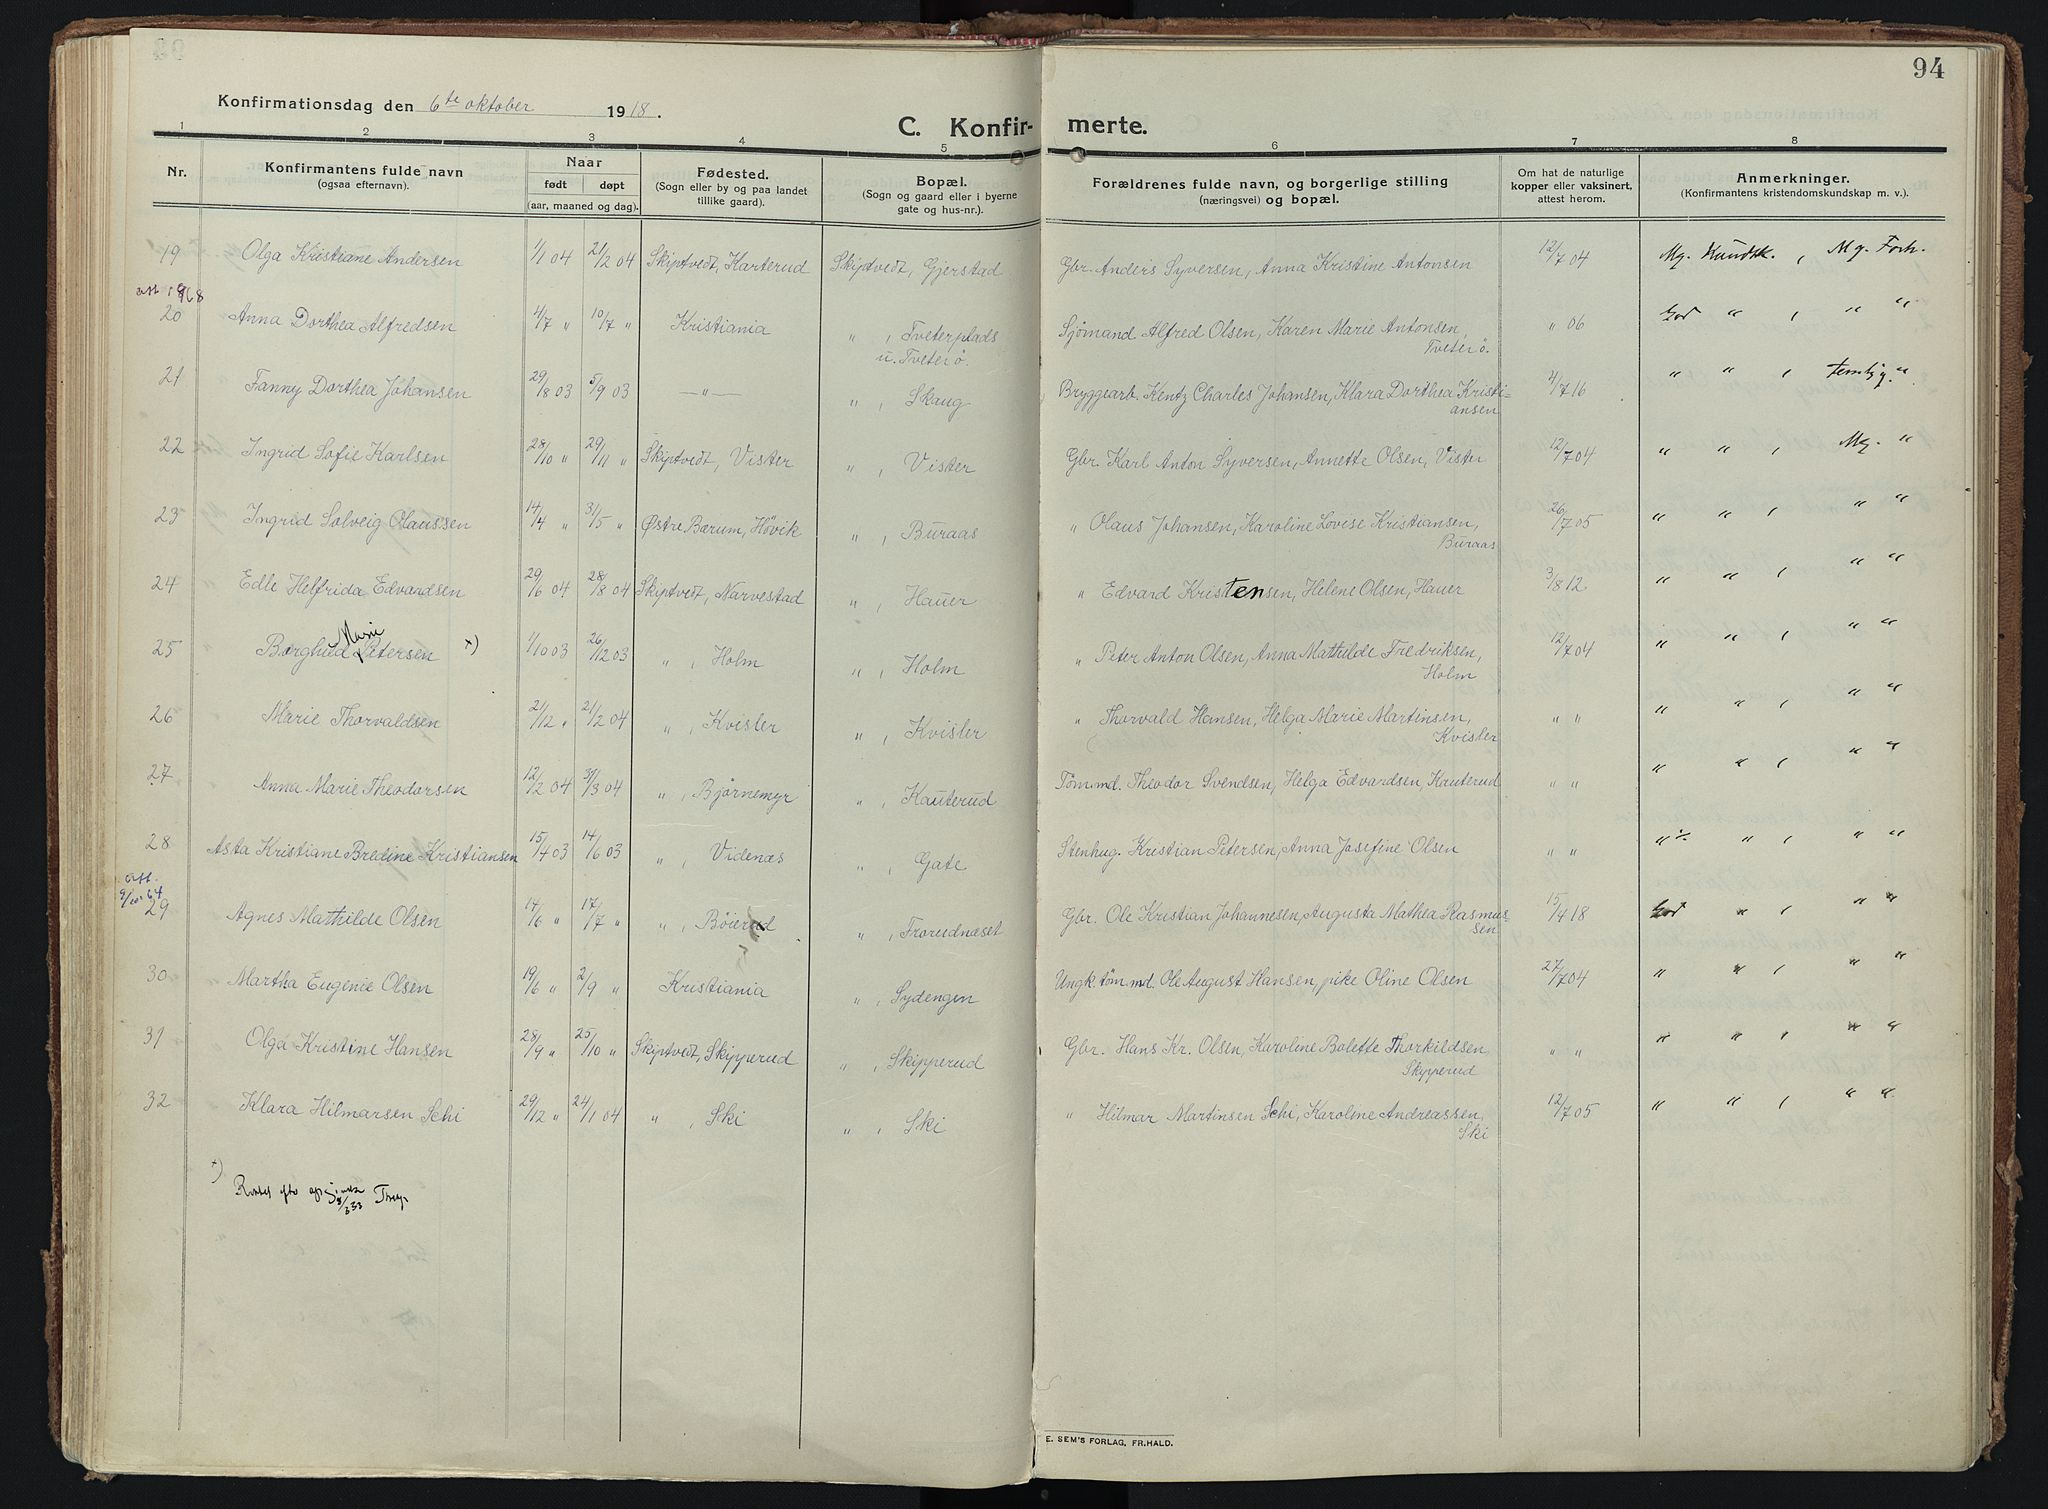 94
Konfirmationsdag den 6te oktober 1918.
C. Konfirmerte.
1 2 3 4 5 6 7 8
Nr. Konfirmantens fulde navn (ogsaa efternavn). Naar født døpt (aar, maaned og dag). Fødested. (Sogn eller by og paa landet tillike gaard). Bopæl. (Sogn og gaard eller i byerne gate og hus-nr.). Forældrenes fulde navn, og borgerlige stilling (næringsvei) og bopæl. Om hat de naturlige kopper eller vaksinert, attest herom. Anmerkninger. (Konfirmantens kristendomskundskap m. v.).
19 Olga Kristiane Andersen 1/1 04 21/2 04 Skiptvedt, Karterud Skiptvedt, Gjerstad Gbr. Anders Syversen, Anna Kristine Antonsen 12/7 04 Mg. Kundsk., Mg. Forh.
att 1968
20 Anna Dorthea Alfredsen 4/7 " 10/7 " Kristiania " , Tveterplads u. Tveter ö Sjømand Alfred Olsen, Karen Marie Antonsen, Tveter ö. " 06 God " , " "
21 Fanny Dorthea Johansen 29/8 03 5/9 03 —"— " , Skaug Bryggearb. Kentz Charles Johansen, Klara Dorthea Kristiansen 4/7 16 " " , "
22 Ingrid Sofie Karlsen 28/10 " 29/11 " Skiptvedt, Vister " , Vister Gbr. Karl Anton Syversen, Annette Olsen, Vister 12/7 04 " " , Mg. "
23 Ingrid Solveig Olaussen 14/4 " 31/5 " Østre Bærum, Høvik " , Buraas " Olaus Johansen, Karoline Lovise Kristiansen, Buraas 26/7 05 " " , " "
24 Edle Helfrida Edvardsen 29/6 04 28/8 04 Skiptvedt, Narvestad " , Hauer " Edvard Kristensen, Helene Olsen, Hauer 3/8 12 " " , " "
25 Borghild Marie Petersen +) 1/10 03 26/12 03 " , Holm " , Holm " Peter Anton Olsen, Anna Mathilde Fredriksen, Holm 12/7 04 " " , " "
26 Marie Thorvaldsen 21/12 " 21/2 04 " , Kvisler " , Kvisler " Thorvald Hansen, Helga Marie Martinsen, Kvisler " " " " , " "
27 Anna Marie Theodorsen 12/2 04 31/3 04 " , Bjørnemyr " , Kauterud Tøm.md. Theodor Svendsen, Helga Edvardsen, Kauterud " " " " , " "
28 Asta Kristiane Bredine Kristiansen 15/4 03 14/6 03 " , Videnæs " , Gate Stenhug. Kristian Petersen, Anna Josefine Olsen " " " " , " "
att. 9/10-64
29 Agnes Mathilde Olsen 14/6 " 17/7 " " , Böierud " , Frorudnæset Gbr. Ole Kristian Johannesen, Augusta Mathea Rasmussen 15/4 18 God " , " "
30 Martha Eugenie Olsen 19/6 " 2/9 " Kristiania " , Sydengen Ungk. tøm.md. Ole August Hansen, pike Oline Olsen 27/7 04 " " , " "
31 Olga Kristine Hansen 28/9 " 25/10 " Skiptvedt, Skipperud " , Skipperud Gbr. Hans Kr. Olsen, Karoline Bolette Thorkildsen Skipperud " " " " , " "
32 Klara Hilmarsen Schi 29/12 " 24/1 04 " , Ski " , Ski " Hilmar Martinsen Schi, Karoline Andreassen, Ski 12/7 05 " " , " "
+) Rettet
E. SEM'S FORLAG, FR.HALD.